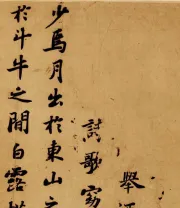 舉
詩歌窈
少焉月出於東山之
於斗牛之間白露